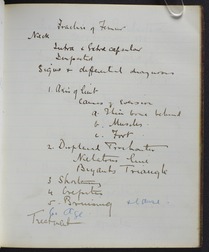 Fracture of Femur
Neck
Intra & Extra capsular
Impacted
Signs & differential diagnosis
1. Axis of limb
Causes of eversion
a. Thin bone behind
b. Muscles
c. Foot
2. Displaced Trochanter
Nelatons line
Bryants Triangle
3 Shortening
4 Crepitus
5. Bruising
6. Age
Treatment